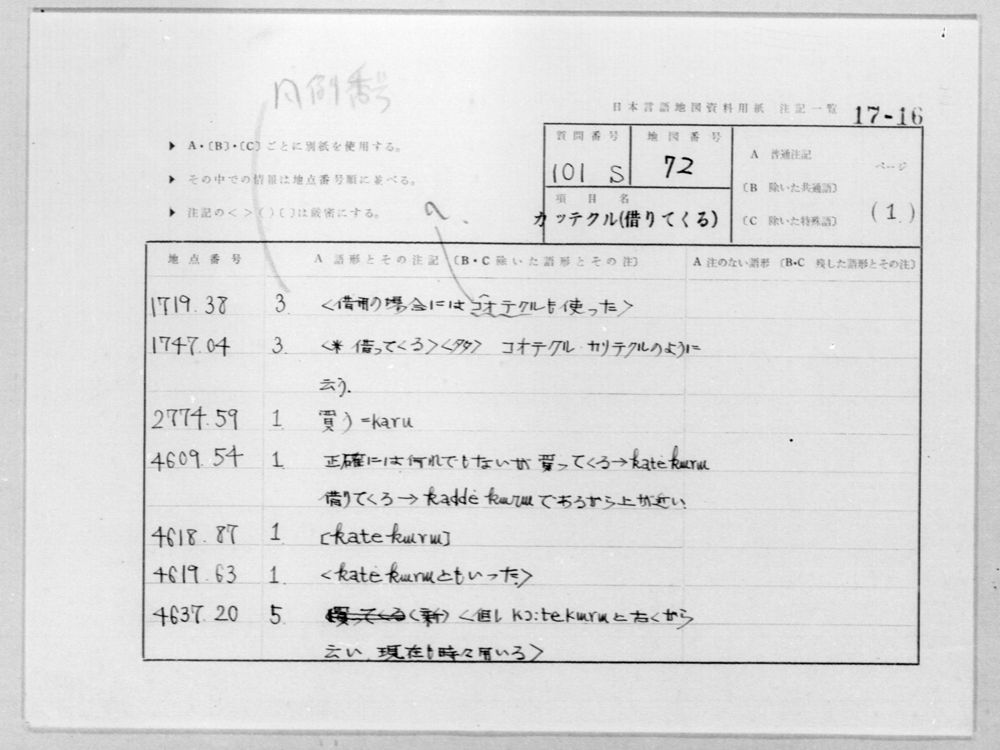 凡例番号
日本言語地図資料用紙 注記一覧 17-16
▶ A・〔B〕・〔C〕ごとに別紙を使用する。
▶ その中での情報は地点番号順に並べる。
▶ 注記の< >( )〔 〕は厳密にする。
質問番号 地図番号
101 S 72
項目名
カッテクル(借りてくる)
A 普通注記
〔B 除いた共通語〕
〔C 除いた特殊語〕
ページ
(1)
a.
地点番号 A 語形とその注記〔B・C除いた語形とその注〕 A 注のない語形〔B・C 残した語形とその注〕
1719.38 3. <借用の場合にはコオテクルも使った>
1747.04 3. <* 借ってくる><タタ> コオテクル カリテクルのように
云う.
2774.59 1. 買う=karu
4609.54 1. 正確には何れでもないが 買ってくる→kate kuru
借りてくる→kadde kuruであるから上が近い
4618.87 1. [kate kuru]
4619.63 1. <kate kuruともいった>
4637.20 5. 買ってくる(新) <但し kɔ:tekuruと古くから
云い、現在も時々用いる>